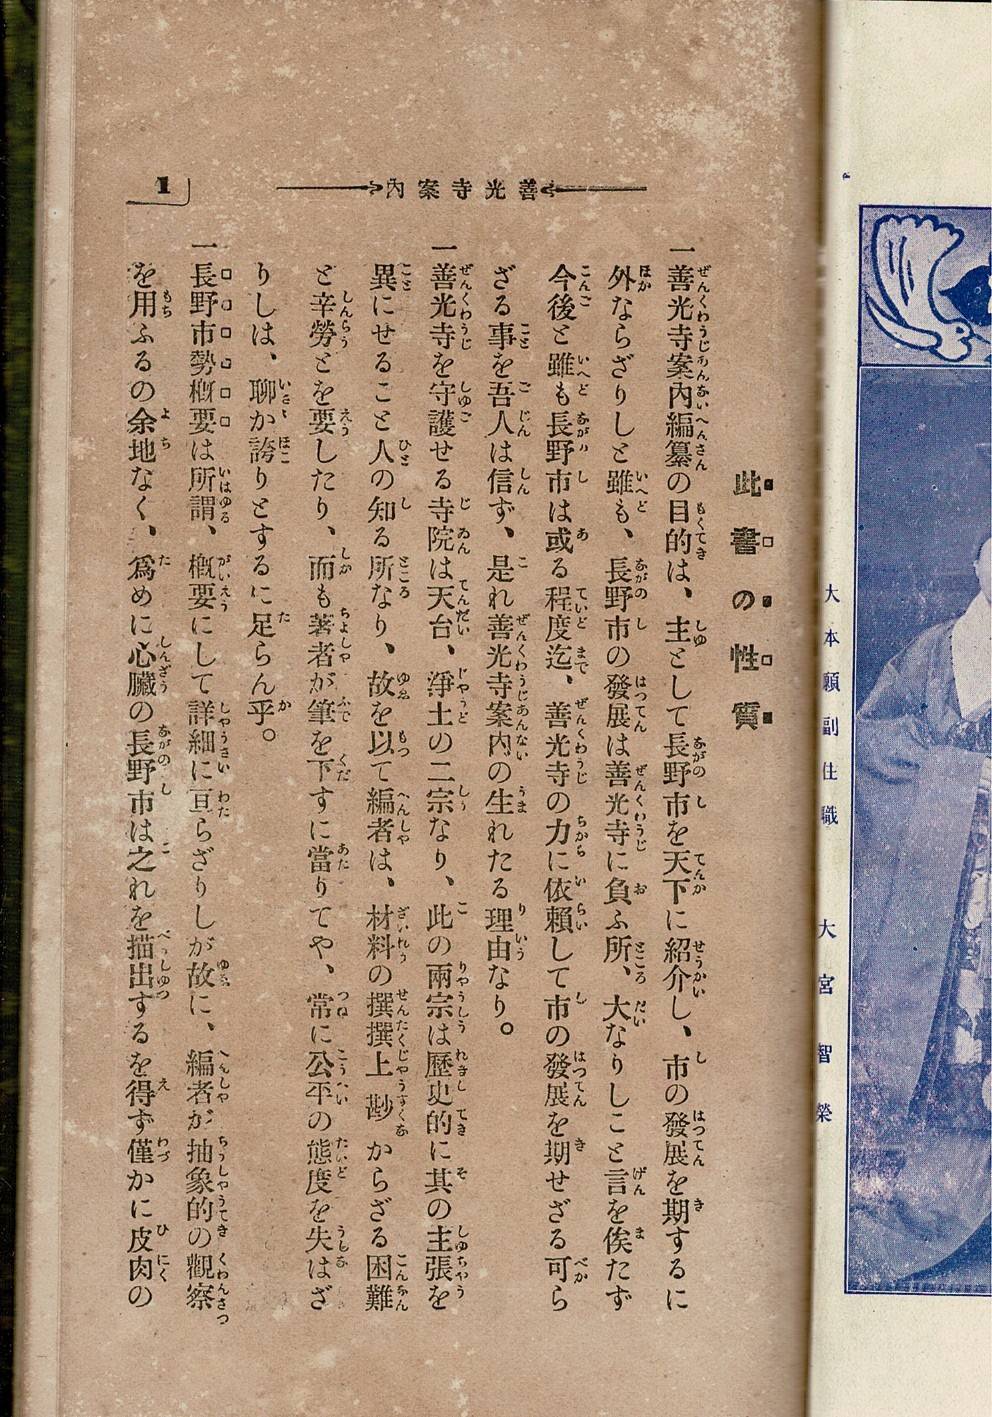 大本願副住職　大宮智榮
善光寺案內
此書の性質
一善光寺案內編纂の目的は、主として長野市を天下に紹介し、市の發展を期するに
外ならざりしと雖も、長野市の發展は善光寺に負ふ所、大なりしこと言を俟たず
今後と雖も長野市は或る程度迄、善光寺の力に依賴して市の發展を期せざる可ら
ざる事を吾人は信ず、是れ善光寺案內の生れたる理由なり。
一善光寺を守護せる寺院は天台、淨土の二宗なり、此の兩宗は歷史的に其の主張を
異にせること人の知る所なり、故を以て編者は、材料の撰擇上尠からざる困難
と辛勞とを要したり、而も著者が筆を下すに當りてや、常に公平の態度を失はざ
りしは、聊か誇りとするに足らん乎。
一長野市勢槪要は所謂、槪要にして詳細に亘らざりしが故に、編者が抽象的の觀察
を用ふるの余地なく、爲めに心臟の長野市は之れを描出するを得ず僅かに皮肉の
1